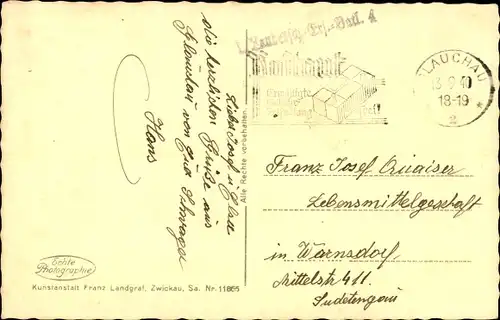 Lieber Josef u. Elsa
die herzlichen Grüße aus
Glauchau von Eurem Schwager
Hans
Alle Rechte vorbehalten.
GLAUCHAU
18-19
2
Franz Josef Quaiser
Lebensmittelgeschäft
in Warnsdorf
Mittelstr 411.
Sudetengau
Echte
Photographie
Kunstanstalt Franz Landgraf, Zwickau, Sa. Nr. 11865